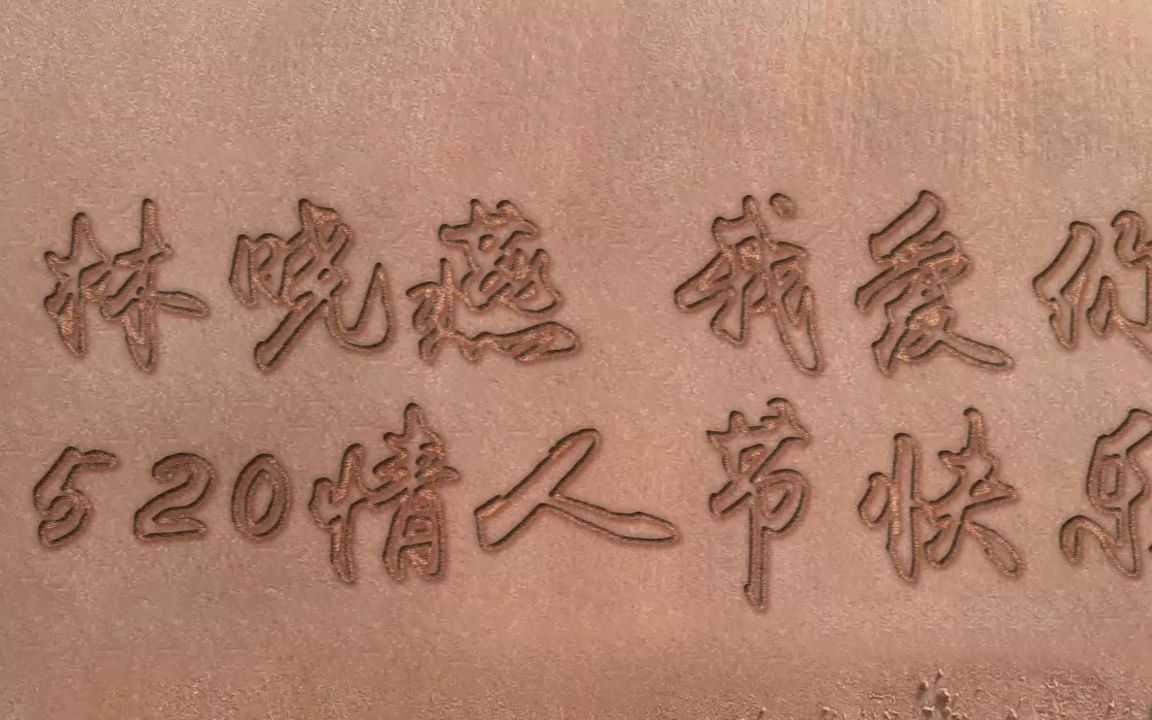 林晓燕 我爱你
520情人节快乐